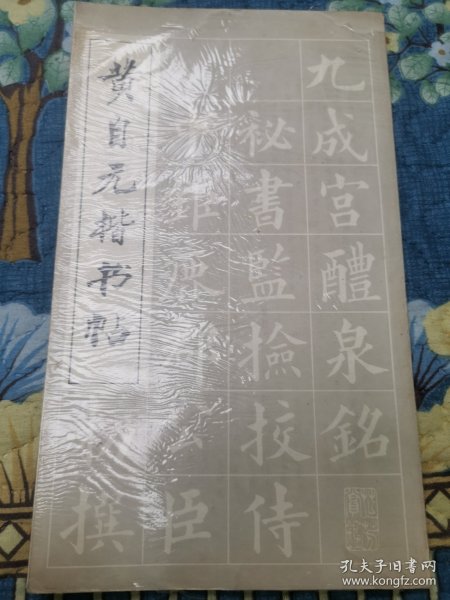 黄自元楷书帖
九成宮醴泉銘
祕書監撿挍侍
鉅鹿郡公臣
撰
孔夫子旧书网
www.kongfz.com